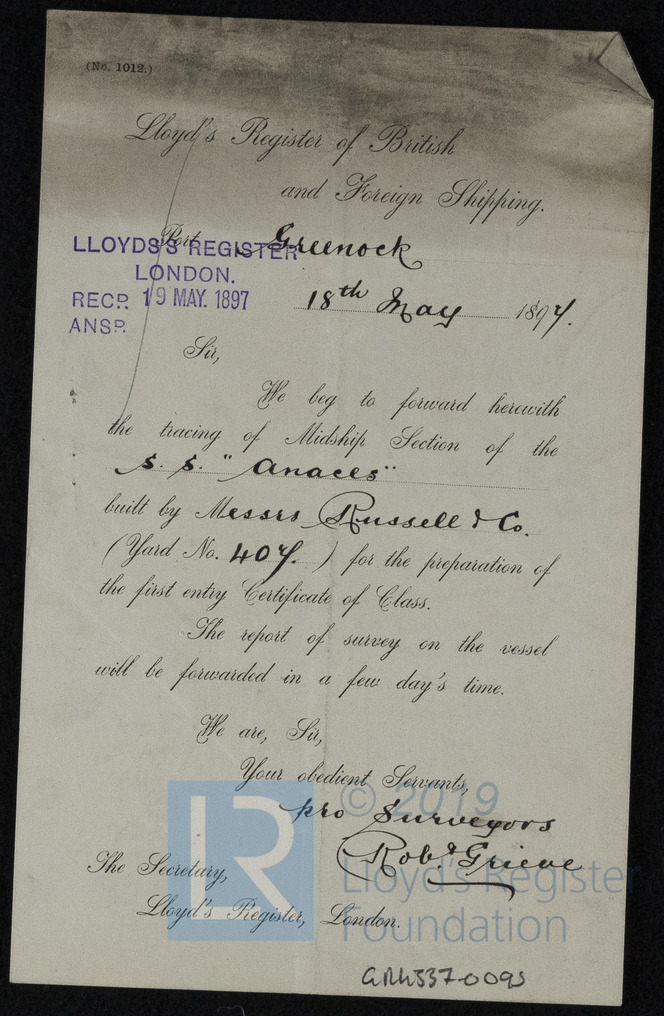 (No. 1012.)
Lloyd's Register of British
and Foreign Shipping.
Port Greenock
LLOYDS'S REGISTER
LONDON.
RECD. 19 MAY. 1897
ANSD.
18th May 1897.
Sir,
We beg to forward herewith
the tracing of Midship Section of the
S. S. "Anaces"
built by Messrs Russell & Co.
(Yard No. 407.) for the preparation of
the first entry Certificate of Class.
The report of survey on the vessel
will be forwarded in a few day's time.
We are, Sir,
Your obedient Servants,
pro Surveyors
Robt. Grieve
The Secretary,
Lloyd's Register, London.
LR
© 2019
Lloyd's Register
Foundation